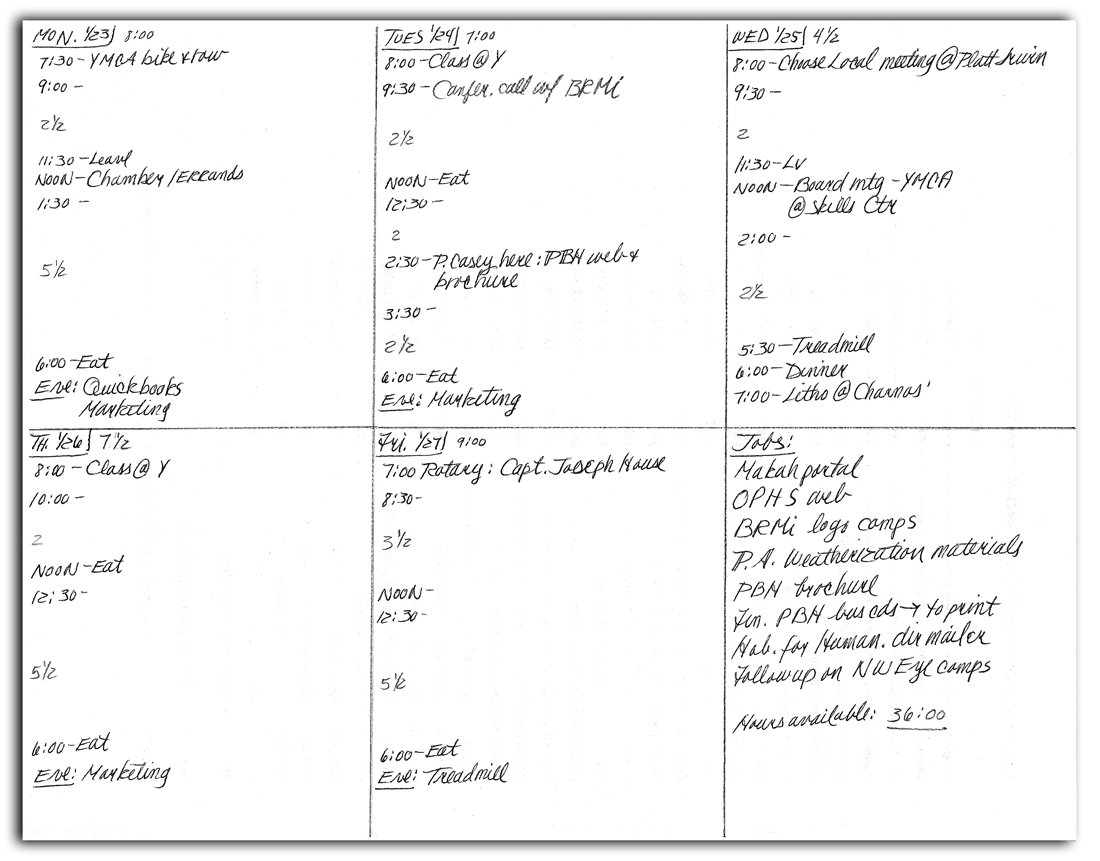 MON. 1/23 8:00
7:30 - YMCA bike & row
9:00 -
2 1/2
11:30 - Leave
NOON - Chamber / ERRANDS
1:30 -
5 1/2
6:00 - Eat
Eve: Quickbooks
Marketing
TUES 1/24 7:00
8:00 - Class @ Y
9:30 - Confer. call w/ BRMi
2 1/2
NOON - Eat
12:30 -
2
2:30 - P. Casey here: PBH web &
brochure
3:30 -
2 1/2
6:00 - Eat
Eve: Marketing
WED 1/25 4 1/2
8:00 - Choose Local meeting @ Platt Irwin
9:30 -
2
11:30 - Lv
NOON - Board mtg - YMCA
@ Skills Ctr
2:00 -
2 1/2
5:30 - Treadmill
6:00 - Dinner
7:00 - Litho @ Charnas'
TH. 1/26 7 1/2
8:00 - Class @ Y
10:00 -
2
NOON - Eat
12:30 -
5 1/2
6:00 - Eat
Eve: Marketing
Fri. 1/27 9:00
7:00 Rotary: Capt. Joseph House
8:30 -
3 1/2
NOON -
12:30 -
5 1/2
6:00 - Eat
Eve: Treadmill
Jobs:
Makah portal
OPHS web
BRMi logo comps
P.A. Weatherization materials
PBH brochure
Fin. PBH bus cds → to print
Hab. for Human. dir mailer
Follow up on NW Eye comps
Hours available: 36:00